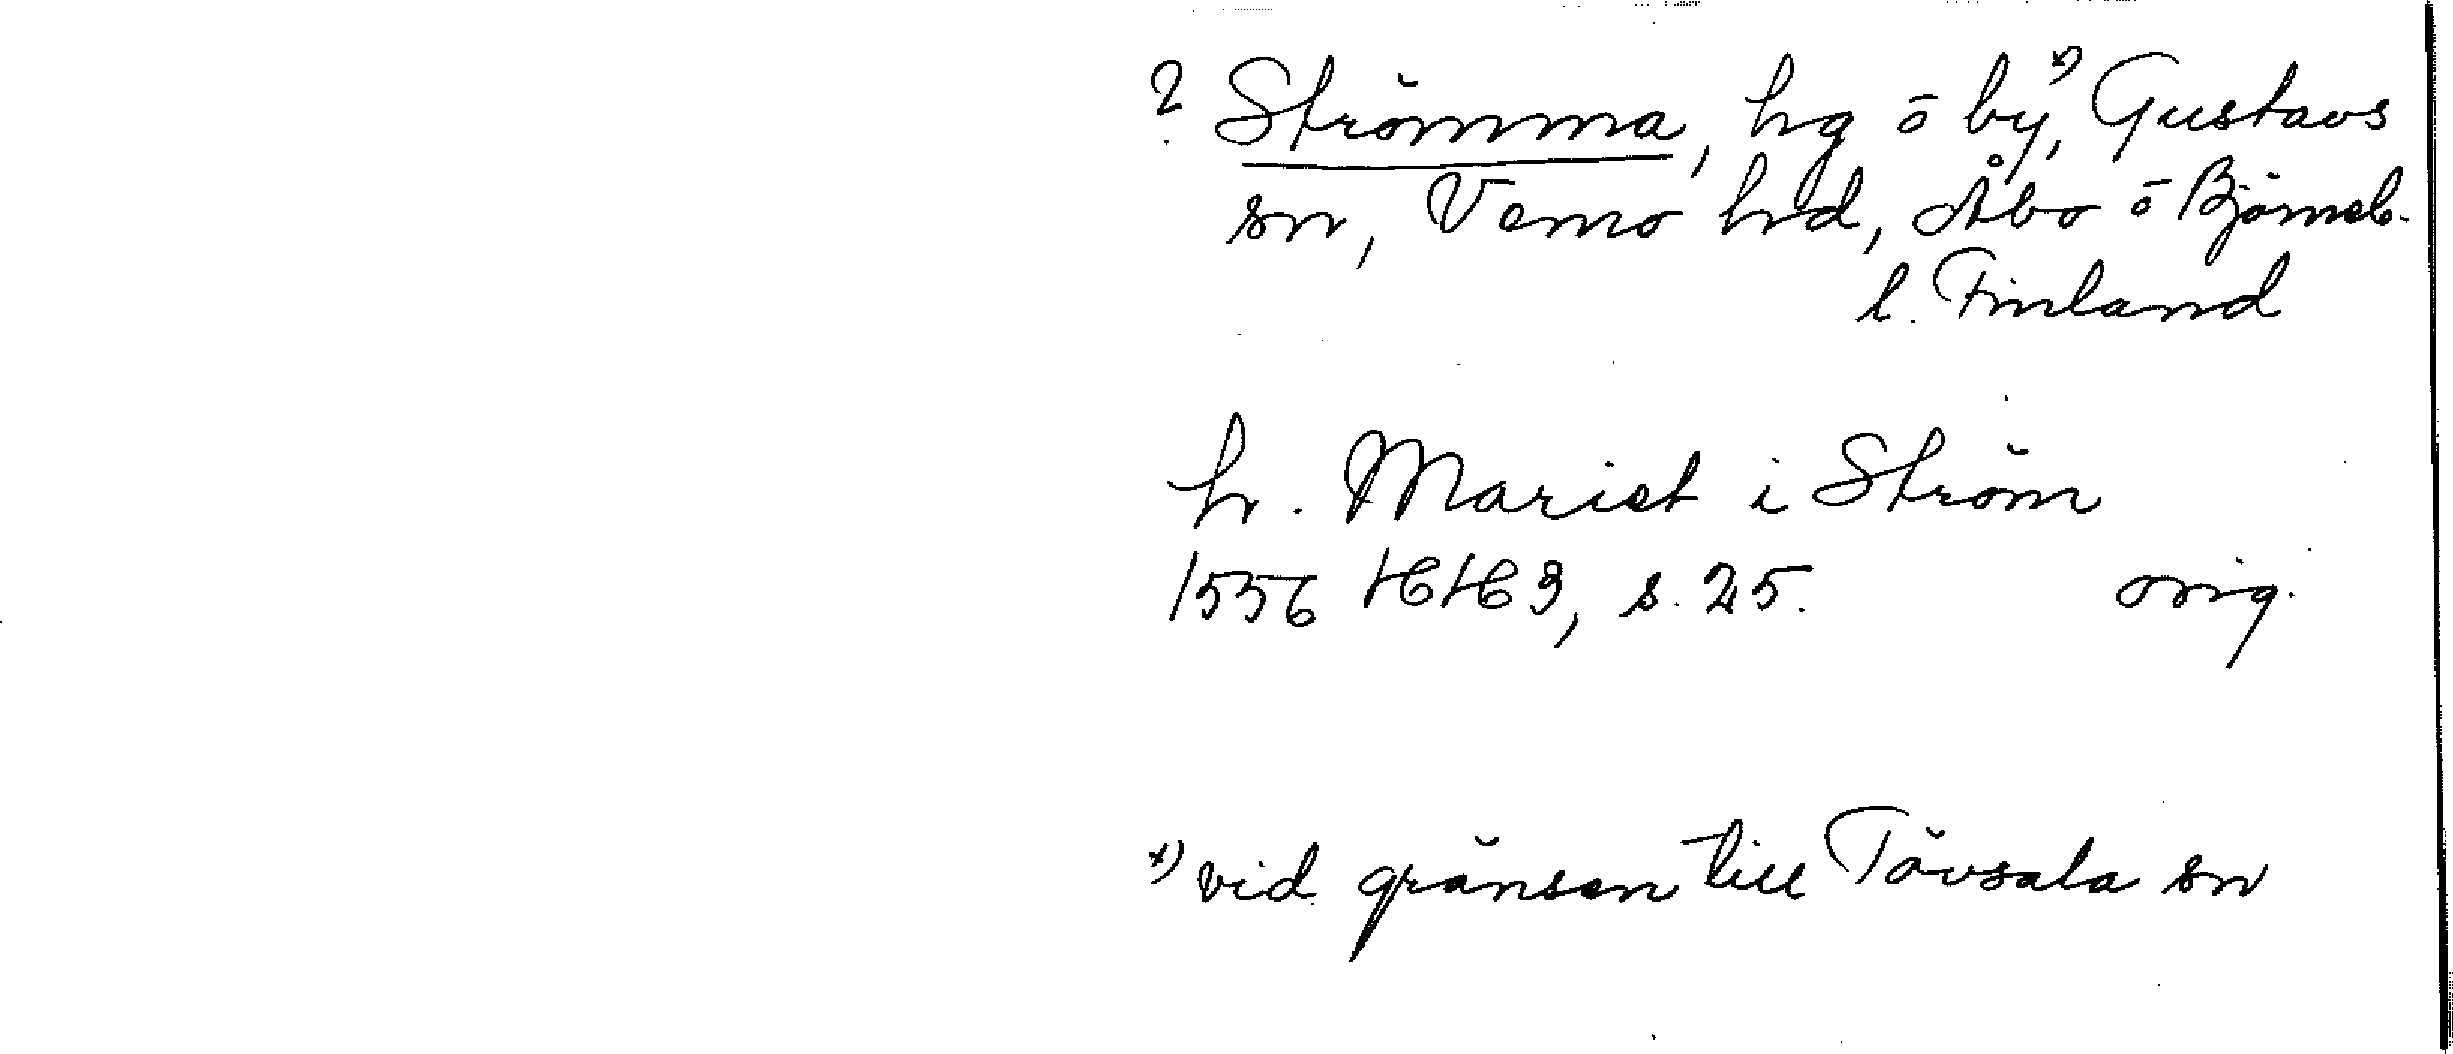 ? Strömma, hg o by, x) Gustavs
sn, Vemo hd, Åbo o Björneb.
l. Finland
h. Mariet i Ström
1556 HH3, s. 25. orig.
x) vid gränsen till Tövsala sn